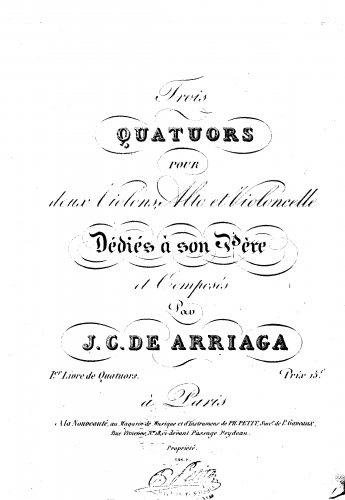 Trois
QUATUORS
POUR
deux Violons, Alto et Violoncelle
Dédiés à son Père
et Composés
Par
J. C. DE ARRIAGA
1er Livre de Quatuors. Prix 15f
à Paris
A la Nouveauté, au Magasin de Musique et d'Instrumens de PH. PETIT, Succr de P. GAVEAUX,
Rue Vivienne, No 18, ci-devant Passage Feydeau.
Propriété.